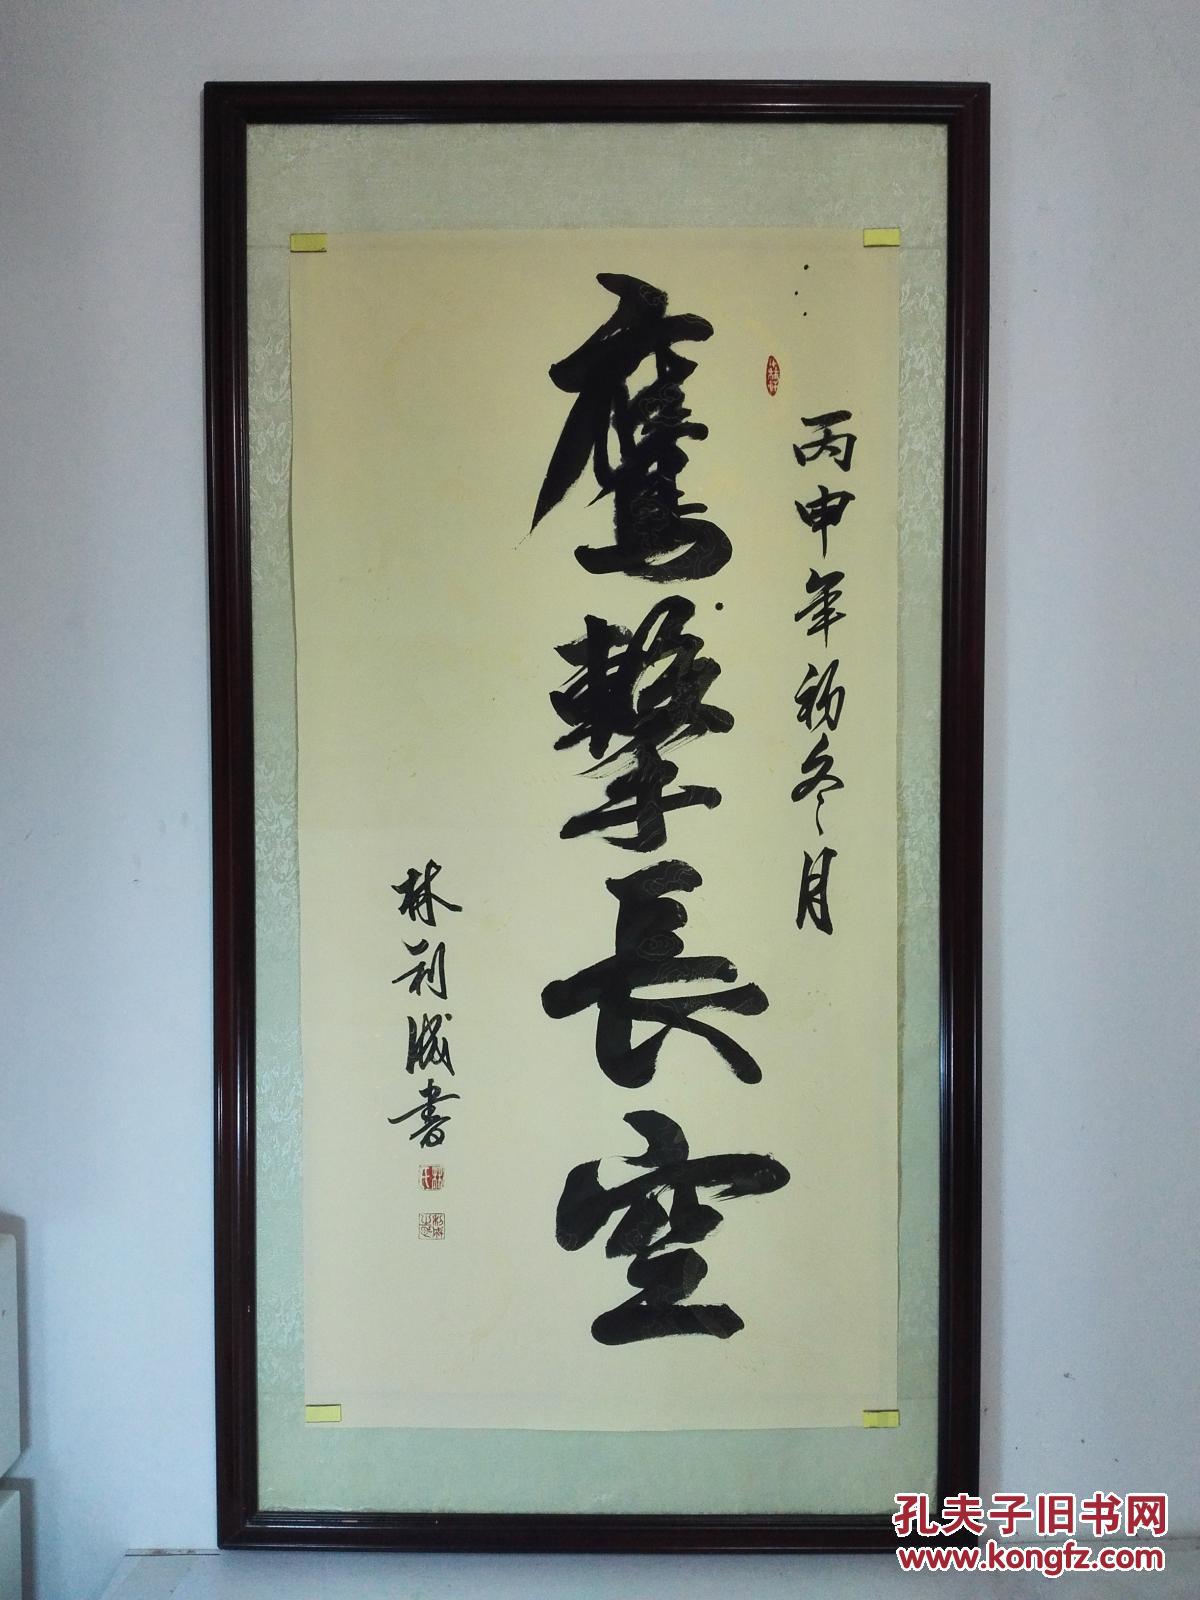 丙申年初冬月
鷹擊長空
林利成書
孔夫子旧书网
www.kongfz.com